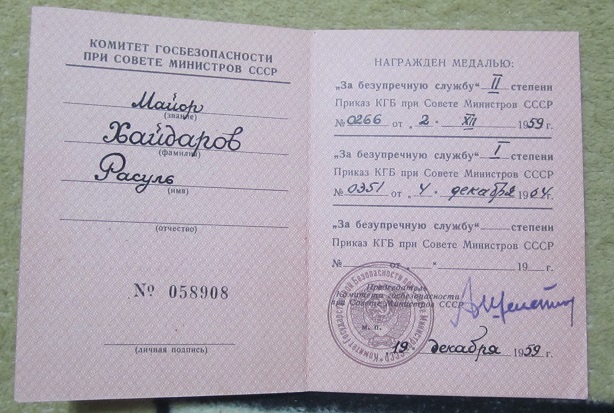 КОМИТЕТ ГОСБЕЗОПАСНОСТИ
ПРИ СОВЕТЕ МИНИСТРОВ СССР
Майор
(звание)
Хайдаров
(фамилия)
Расуль
(имя)
(отчество)
№ 058908
(личная подпись)
НАГРАЖДЕН МЕДАЛЬЮ:
„За безупречную службу“ II степени
Приказ КГБ при Совете Министров СССР
№ 0266 от „ 2. XII 1959г.
„За безупречную службу“ I степени
Приказ КГБ при Совете Министров СССР
№ 0351 от „ 4. декабря 1964г.
„За безупречную службу“ степени
Приказ КГБ при Совете Министров СССР
№ от „ “ 19 г.
Председатель
Комитета госбезопасности
при Совете Министров СССР
м. п.
19 декабря 1959г.